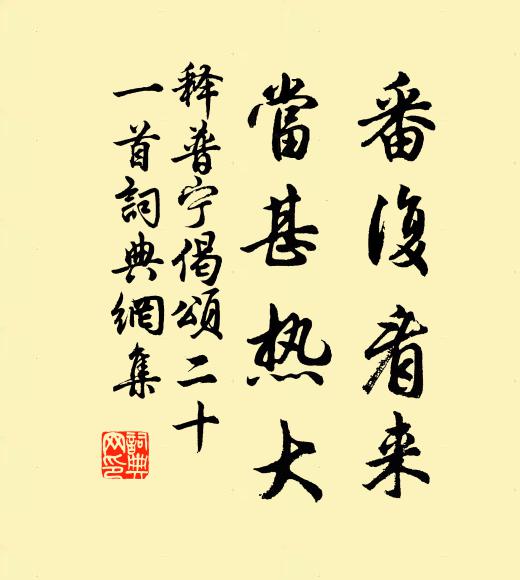 番復看来
當甚热大
释普宁偈頌二十
一首詞典網集
詞典网印